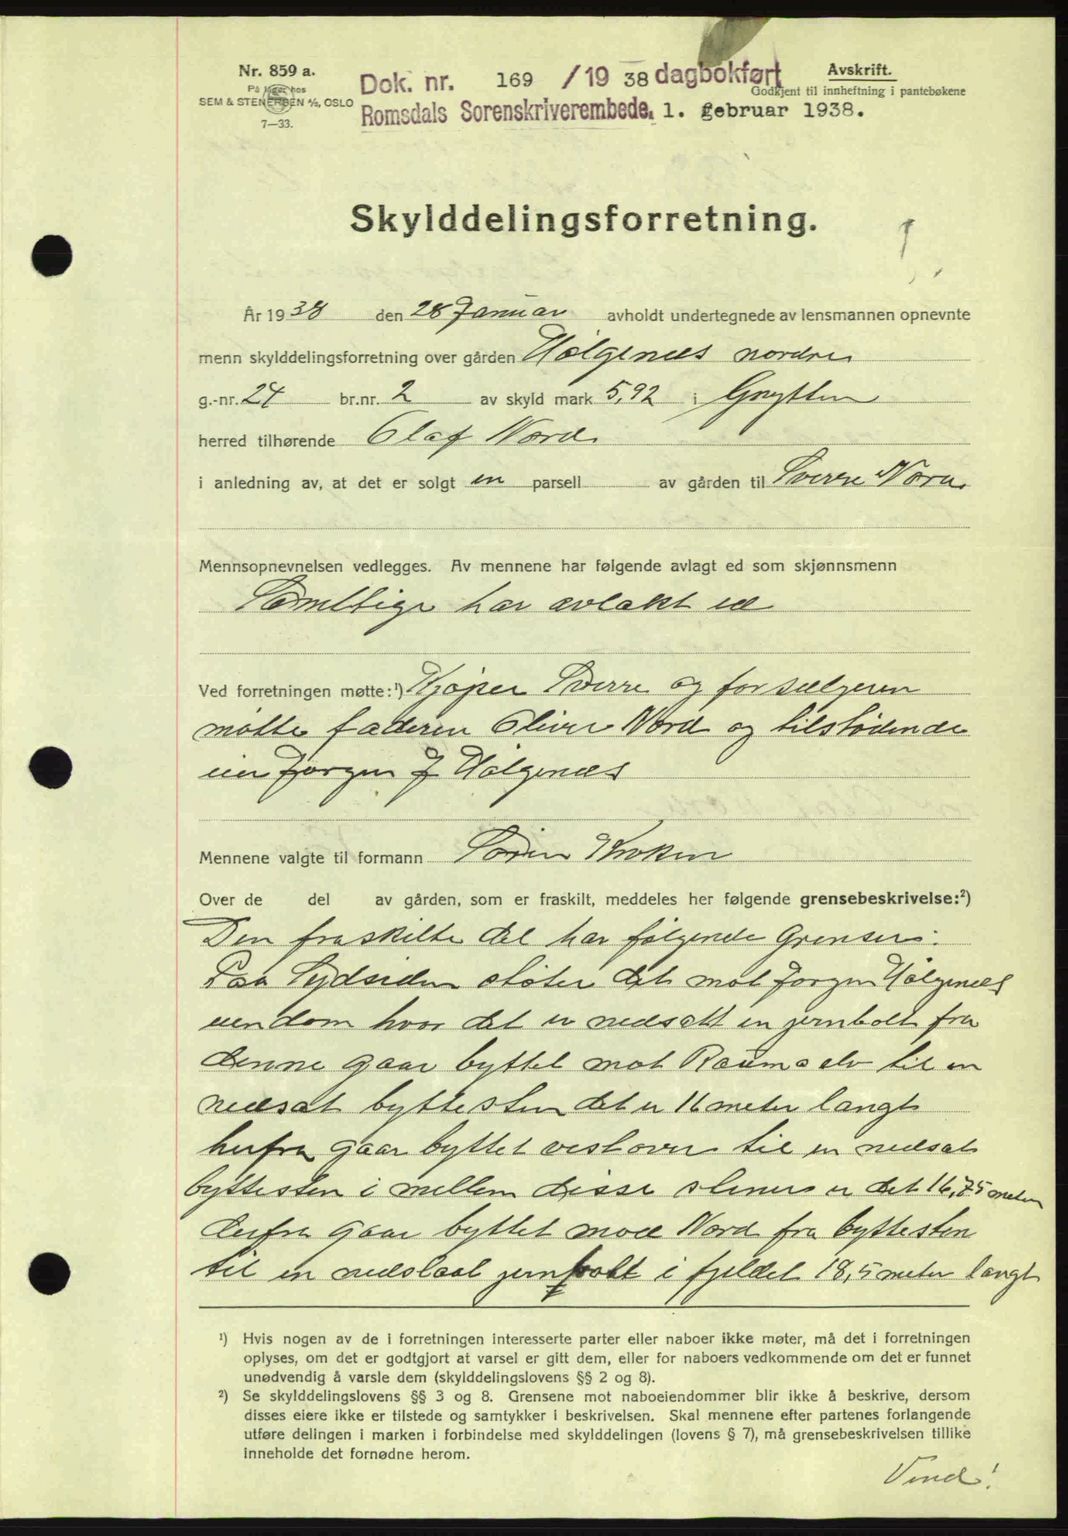 Nr. 859 a.
På lager hos
SEM & STENERSEN A/S, OSLO
7—33.
Dok. nr. 169 / 19 38 dagbokført
Romsdals Sorenskriverembede, 1. februar 1938.
Avskrift.
Godkjent til innheftning i pantebøkene
Skylddelingsforretning.
År 1938 den 28 Januar avholdt undertegnede av lensmannen opnevnte
menn skylddelingsforretning over gården Hølgenes nordre
g.-nr. 24 br.nr. 2 av skyld mark 5,92 i Grytten
herred tilhørende Olaf Nord
i anledning av, at det er solgt en parsell av gården til Sverre Nord
Mennsopnevnelsen vedlegges. Av mennene har følgende avlagt ed som skjønnsmenn
Samtlige har avlakt ed
Ved forretningen møtte:¹) Kjøper Sverre og for sælgeren
møtte faderen Oliver Nord og tilstødende
eier Jørgen J Hølgenes
Mennene valgte til formann Søren Kroken
Over de del av gården, som er fraskilt, meddeles her følgende grensebeskrivelse:²)
Den fraskilte del har følgende Grenser:
Paa Sydsiden støter det mot Jørgen Hølgenes
eiendom hvor det er nedsatt en jernbolt fra
denne gaar byttet mot Rauma elv til en
nedsat byttesten det er 16 meter langt
herfra gaar byttet vestover til en nedsat
byttesten i mellem disse stener er det 16,75 meter
derfra gaar byttet mod Nord fra byttesten
til en nedslaat jernbolt i fjeldet 18,5 meter langt
¹) Hvis nogen av de i forretningen interesserte parter eller naboer ikke møter, må det i forretningen
oplyses, om det er godtgjort at varsel er gitt dem, eller for naboers vedkommende om det er funnet
unødvendig å varsle dem (skylddelingslovens §§ 2 og 8).
²) Se skylddelingslovens §§ 3 og 8. Grensene mot naboeiendommer blir ikke å beskrive, dersom
disses eiere ikke er tilstede og samtykker i beskrivelsen. Skal mennene efter partenes forlangende
utføre delingen i marken i forbindelse med skylddelingen (lovens § 7), må grensebeskrivelsen tillike
inneholde det fornødne herom.
Vend!